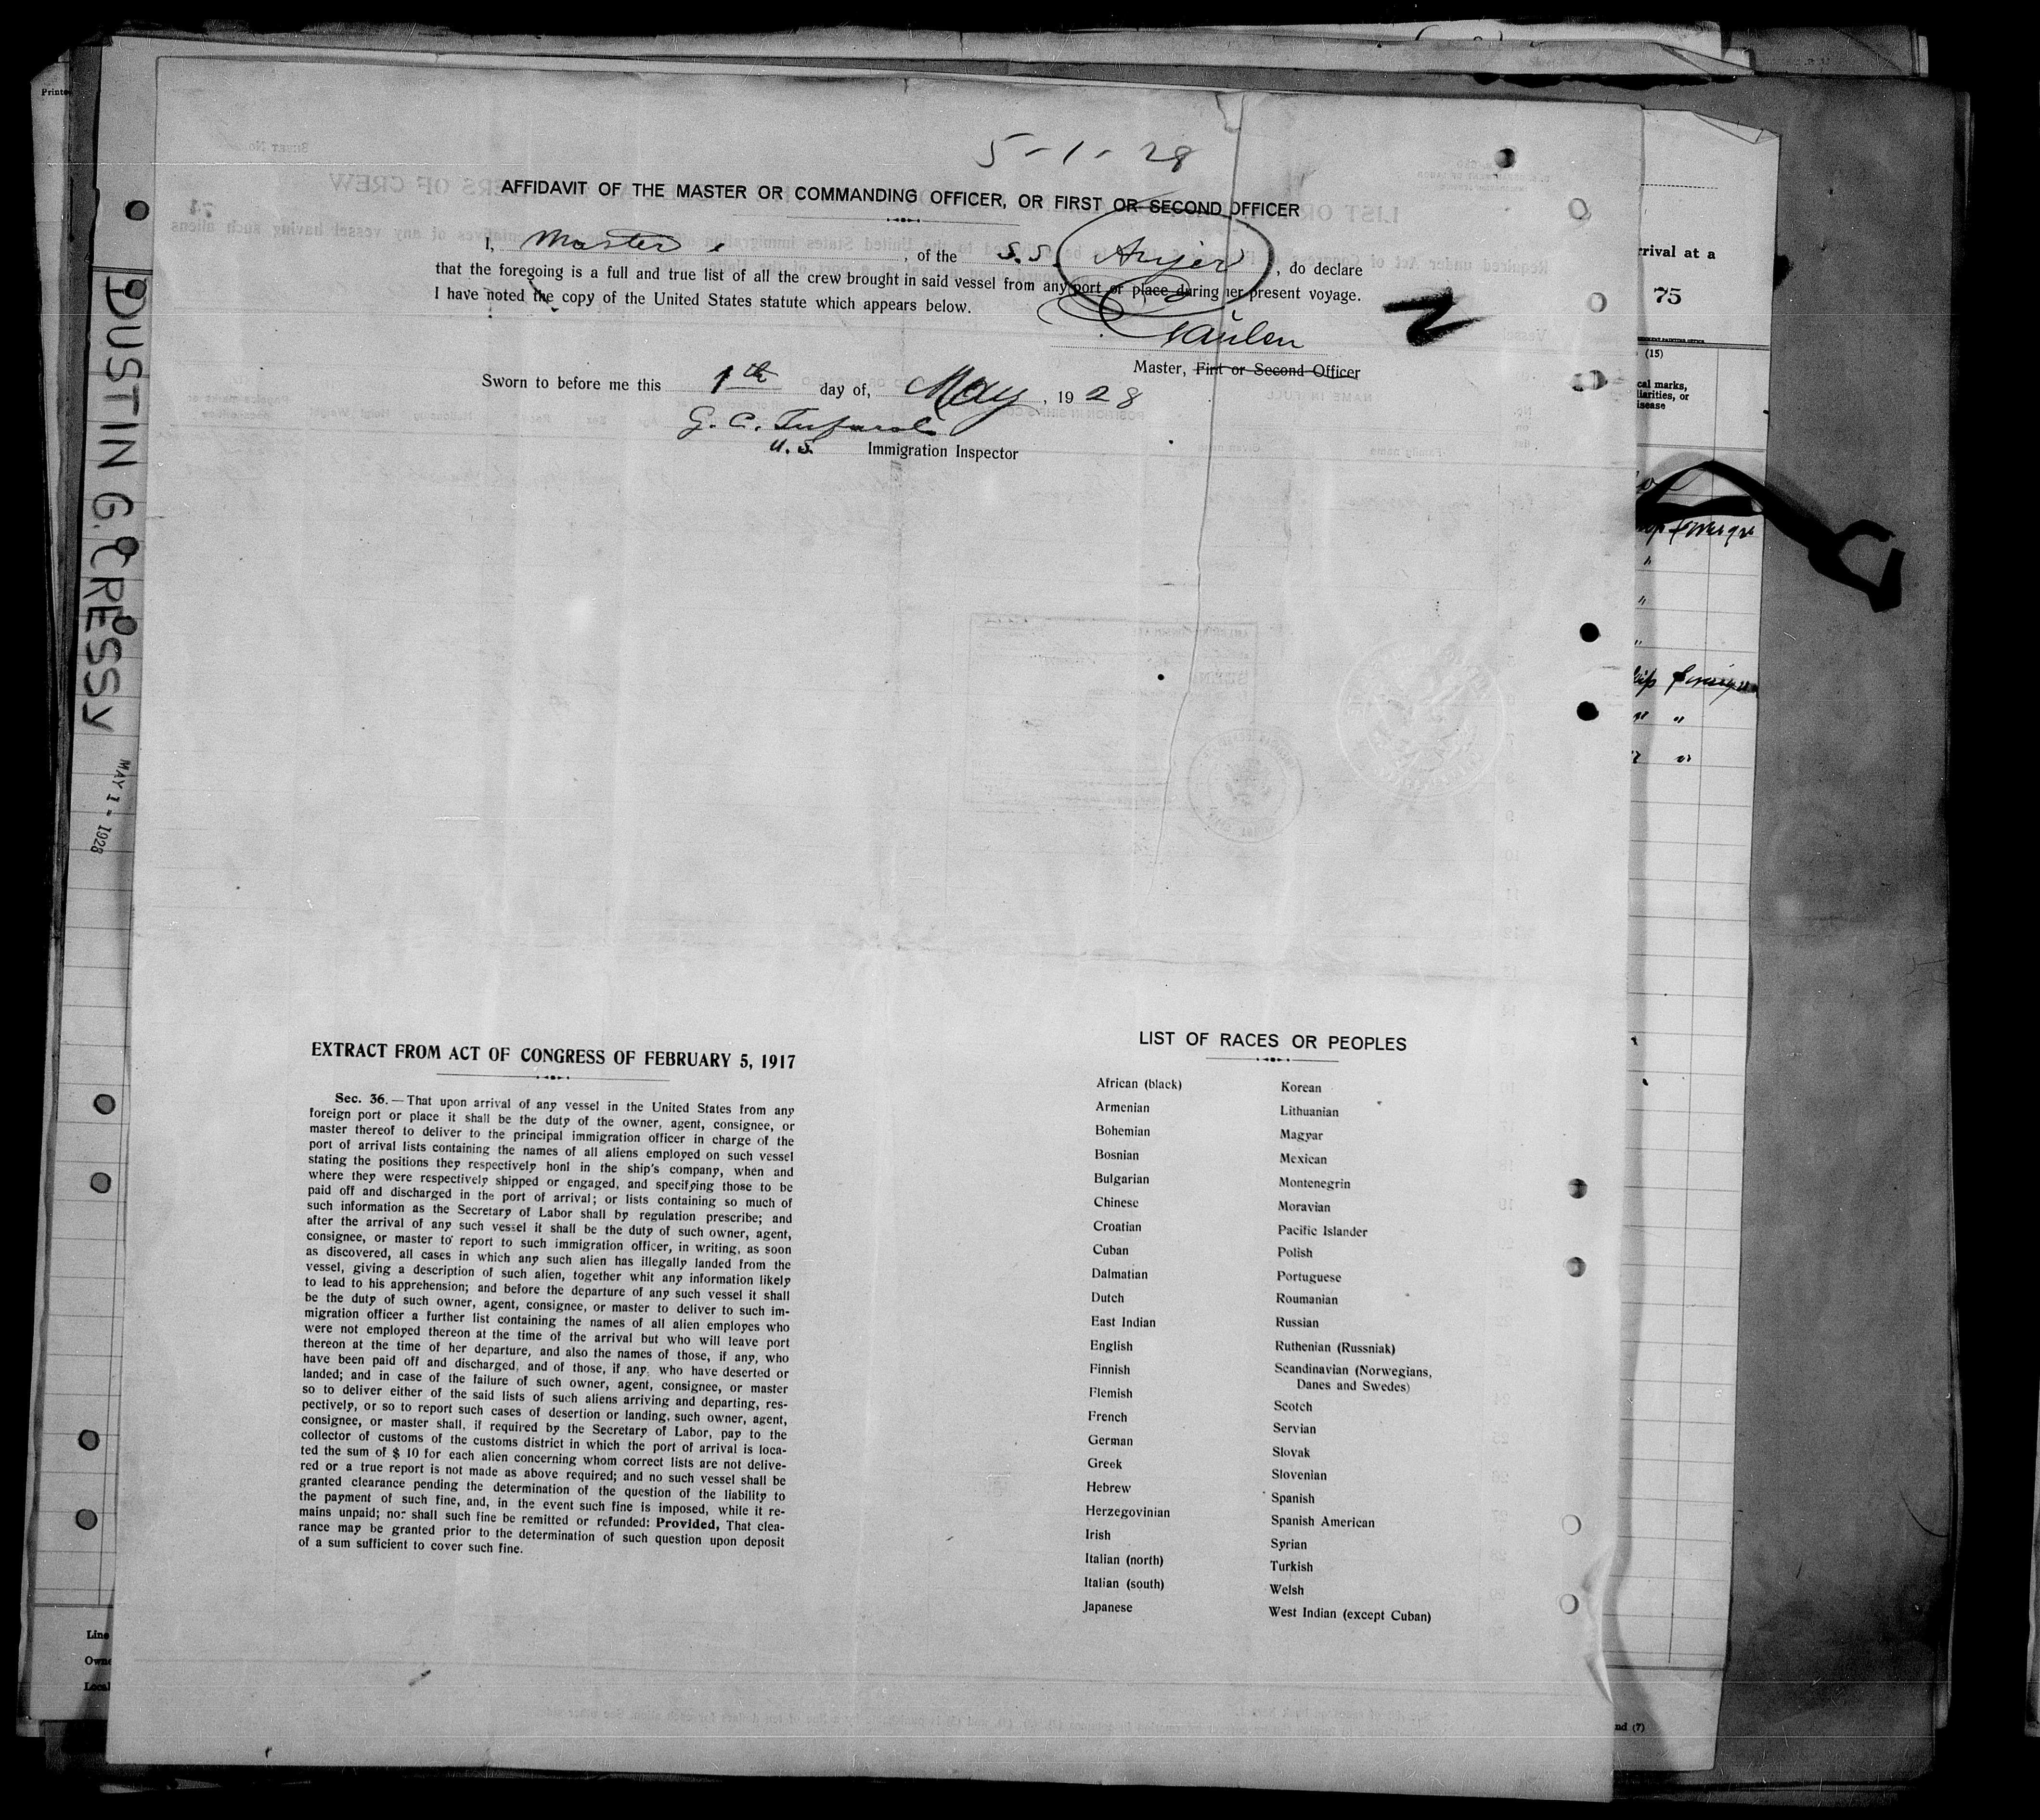 5-1-28
AFFIDAVIT OF THE MASTER OR COMMANDING OFFICER, OR FIRST OR SECOND OFFICER
I, Master, of the S.S. , do declare
that the foregoing is a full and true list of all the crew brought in said vessel from any port or place during her present voyage.
I have noted the copy of the United States statute which appears below.
Master, First or Second Officer
Sworn to before me this 1th day of, May, 1928
G. C.
U.S. Immigration Inspector
DUSTIN G. CRESSY
MAY 1 - 1928
EXTRACT FROM ACT OF CONGRESS OF FEBRUARY 5, 1917
Sec. 36. — That upon arrival of any vessel in the United States from any
foreign port or place it shall be the duty of the owner, agent, consignee, or
master thereof to deliver to the principal immigration officer in charge of the
port of arrival lists containing the names of all aliens employed on such vessel
stating the positions they respectively honl in the ship's company, when and
where they were respectively shipped or engaged, and specifying those to be
paid off and discharged in the port of arrival; or lists containing so much of
such information as the Secretary of Labor shall by regulation prescribe; and
after the arrival of any such vessel it shall be the duty of such owner, agent,
consignee, or master to report to such immigration officer, in writing, as soon
as discovered, all cases in which any such alien has illegally landed from the
vessel, giving a description of such alien, together whit any information likely
to lead to his apprehension; and before the departure of any such vessel it shall
be the duty of such owner, agent, consignee, or master to deliver to such im-
migration officer a further list containing the names of all alien employes who
were not employed thereon at the time of the arrival but who will leave port
thereon at the time of her departure, and also the names of those, if any, who
have been paid off and discharged, and of those, if any, who have deserted or
landed; and in case of the failure of such owner, agent, consignee, or master
so to deliver either of the said lists of such aliens arriving and departing, res-
pectively, or so to report such cases of desertion or landing, such owner, agent,
consignee, or master shall, if required by the Secretary of Labor, pay to the
collector of customs of the customs district in which the port of arrival is loca-
ted the sum of $ 10 for each alien concerning whom correct lists are not delive-
red or a true report is not made as above required; and no such vessel shall be
granted clearance pending the determination of the question of the liability to
the payment of such fine, and, in the event such fine is imposed, while it re-
mains unpaid; nor shall such fine be remitted or refunded: Provided, That clea-
rance may be granted prior to the determination of such question upon deposit
of a sum sufficient to cover such fine.
LIST OF RACES OR PEOPLES
African (black)
Armenian
Bohemian
Bosnian
Bulgarian
Chinese
Croatian
Cuban
Dalmatian
Dutch
East Indian
English
Finnish
Flemish
French
German
Greek
Hebrew
Herzegovinian
Irish
Italian (north)
Italian (south)
Japanese
Korean
Lithuanian
Magyar
Mexican
Montenegrin
Moravian
Pacific Islander
Polish
Portuguese
Roumanian
Russian
Ruthenian (Russniak)
Scandinavian (Norwegians,
Danes and Swedes)
Scotch
Servian
Slovak
Slovenian
Spanish
Spanish American
Syrian
Turkish
Welsh
West Indian (except Cuban)
rrival at a
75
(15)
cal marks,
liarities, or
isease
Printe
Line
Owne
Local
nd (7)